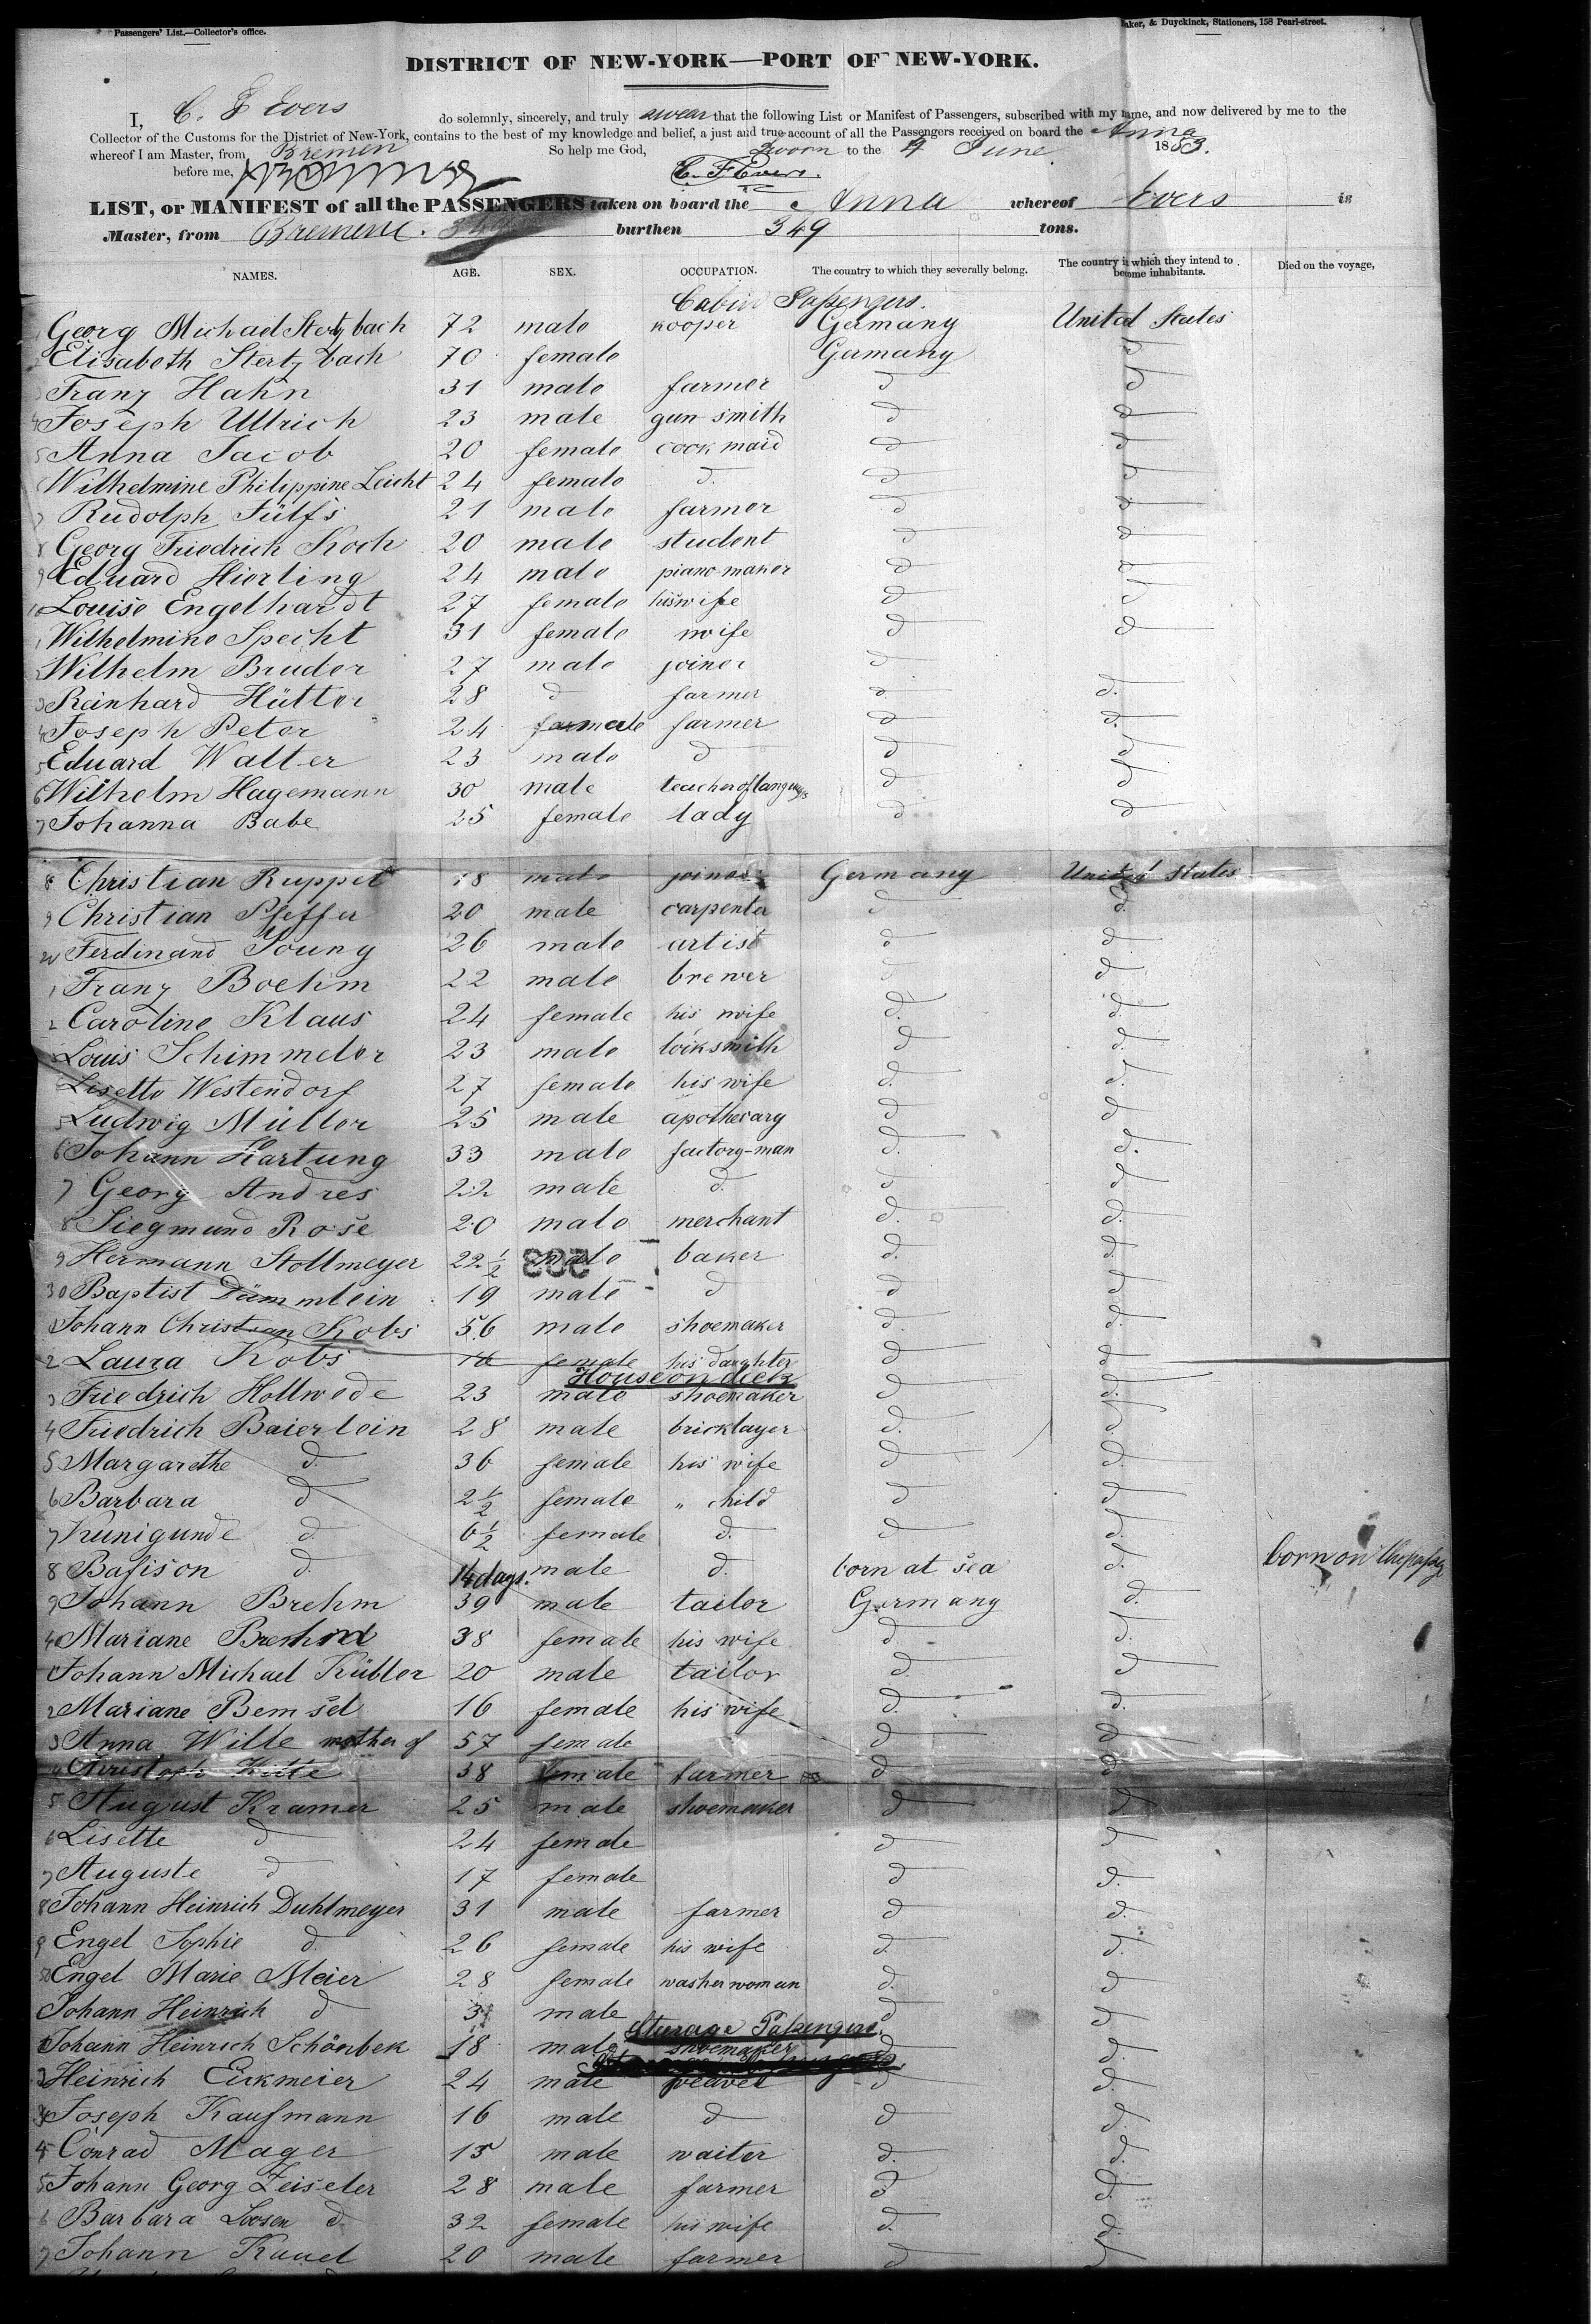 Passengers' List.—Collector's office.
aker, & Duyckinck, Stationers, 158 Pearl-street.
DISTRICT OF NEW-YORK—PORT OF NEW-YORK.
I, C. F Evers do solemnly, sincerely, and truly swear that the following List or Manifest of Passengers, subscribed with my name, and now delivered by me to the
Collector of the Customs for the District of New-York, contains to the best of my knowledge and belief, a just and true account of all the Passengers received on board the Anna
whereof I am Master, from Bremen So help me God, Sworn to the 4 June 1853.
before me, C. F. Evers.
LIST, or MANIFEST of all the PASSENGERS taken on board the Anna whereof Evers is
Master, from Bremen. burthen 349 tons.
NAMES. AGE. SEX. OCCUPATION. The country to which they severally belong. The country in which they intend to become inhabitants. Died on the voyage,
Cabin Passengers.
Georg Michael Stertzbach 72 male kooper Germany United States
Elisabeth Stertzbach 70 female Germany d
3 Franz Hahn 31 male farmer d d
4 Joseph Ullrich 23 male gun smith d d
5 Anna Jacob 20 female cook maid d d
Wilhelmine Philippine Leicht 24 female d. d d
7 Rudolph Fülfs 21 male farmer d d
8 Georg Friedrich Koch 20 male student d d
9 Eduard Hierling 24 male piano maker d d
10 Louise Engelhardt 27 female his wife d d
1 Wilhelmine Specht 31 female wife d d
2 Wilhelm Bruder 27 male joiner d
3 Reinhard Hütter 28 d farmer d d.
4 Joseph Peter 24 male farmer d d.
5 Eduard Walter 23 male d d d
6 Wilhelm Hagemann 30 male teacher of languages d d
7 Johanna Babe 25 female lady d d
8 Christian Ruppel 18 male joiner Germany United States
9 Christian Pfeffer 20 male carpenter d d.
20 Ferdinand Young 26 male artist d d
1 Franz Boehm 22 male brewer d d
2 Caroline Klaus 24 female his wife d. d.
Louis Schimmeler 23 male locksmith d d.
Lisette Westendorf 27 female his wife d. d.
5 Ludwig Müller 25 male apothecary d d
6 Johann Hartung 33 male factory-man d. d.
7 Georg Andres 22 male d. d d
8 Siegmund Rose 20 male merchant d. d.
9 Hermann Stollmeyer 22 1/2 male baker d. d.
30 Baptist Dämmlein 19 male d d d
1 Johann Christian Kobs 56 male shoemaker d. d.
2 Laura Kobs 16 female his daughter d d
House on deck
3 Friedrich Hollwede 23 male shoemaker d d.
4 Friedrich Baierlein 28 male bricklayer d. d
5 Margarethe d. 36 female his wife d d.
6 Barbara d 2 1/2 female " child d d
7 Kunigunde d. 6 1/2 female d. d d.
8 Bafison d. 14 days. male d. born at sea d. born on the passag
9 Johann Brehm 39 male tailor Germany d.
40 Mariane Brehm 38 female his wife d. d.
1 Johann Michael Kübler 20 male tailor d. d
2 Mariane Bemsel 16 female his wife d. d.
3 Anna Wille mother of 57 female d d
4 Christoph Witte 38 male farmer d d
5 August Kramer 25 male shoemaker d d
6 Lisette d 24 female d d
7 Auguste d 17 female d d.
8 Johann Heinrich Duhlmeyer 31 male farmer d d.
9 Engel Sophie d. 26 female his wife d. d.
50 Engel Marie Meier 28 female washerwoman d. d
Johann Heinrich d 3 male d d
Sturage Passengers.
Johann Heinrich Schönbek 18 male shoemaker d d.
Heinrich Eickmeier 24 male weaver d d.
Joseph Kaufmann 16 male d d d.
4 Conrad Mager 15 male waiter d. d.
5 Johann Georg Zeiseler 28 male farmer d d.
6 Barbara Loosen d. 32 female his wife d. d.
7 Johann Kauel 20 male farmer d d